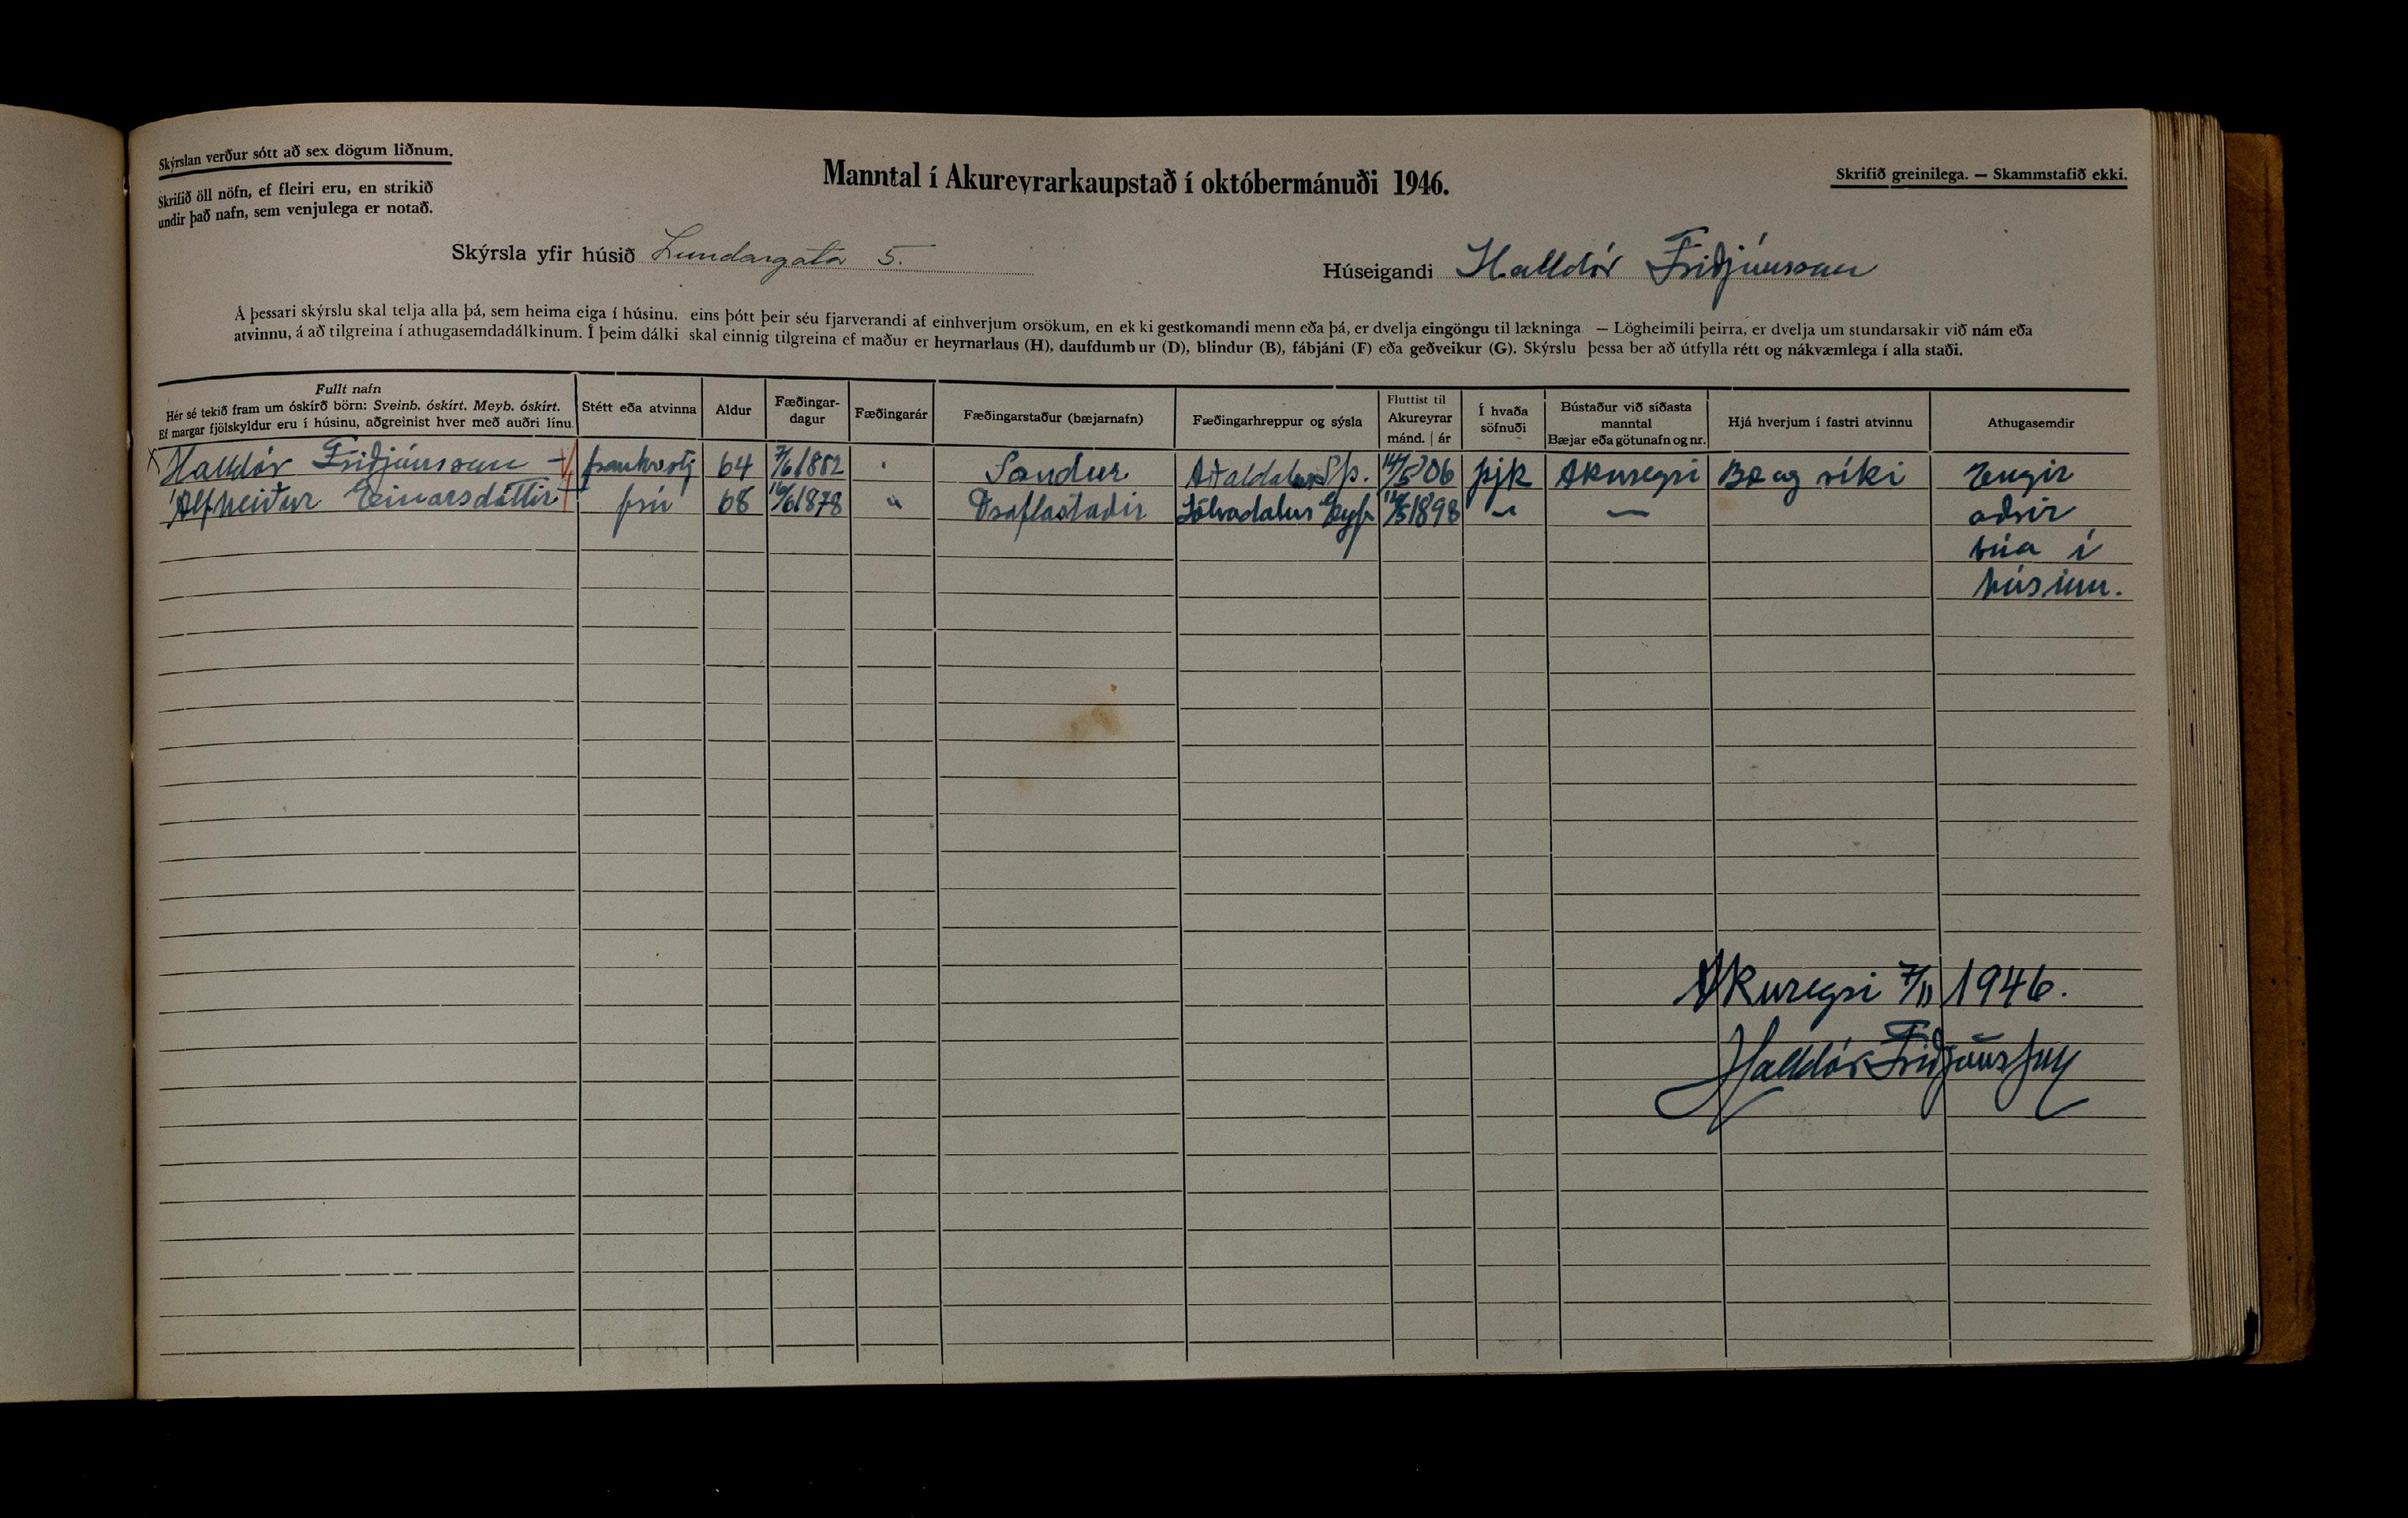 Skýrslan verður sótt að sex dögum liðnum.
Skrifið öll nöfn, ef fleiri eru, en strikið
undir það nafn, sem venjulega er notað.
Manntal í Akureyrarkaupstað í októbermánuði 1946.
Skrifið greinilega. — Skammstafið ekki.
Skýrsla yfir húsið Lundargata 5.
Húseigandi Halldór Friðjónsson
Á þessari skýrslu skal telja alla þá, sem heima eiga í húsinu, eins þótt þeir séu fjarverandi af einhverjum orsökum, en ekki gestkomandi menn eða þá, er dvelja eingöngu til lækninga — Lögheimili þeirra, er dvelja um stundarsakir við nám eða
atvinnu, á að tilgreina í athugasemdadálkinum. Í þeim dálki skal einnig tilgreina ef maður er heyrnarlaus (H), daufdumbur (D), blindur (B), fábjáni (F) eða geðveikur (G). Skýrslu þessa ber að útfylla rétt og nákvæmlega í alla staði.
Fullt nafn
Hér sé tekið fram um óskírð börn: Sveinb. óskírt. Meyb. óskírt.
Ef margar fjölskyldur eru í húsinu, aðgreinist hver með auðri línu.
Stétt eða atvinna
Aldur
Fæðingar-
dagur
Fæðingarár
Fæðingarstaður (bæjarnafn)
Fæðingarhreppur og sýsla
Fluttist til
Akureyrar
mánd. | ár
Í hvaða
söfnuði
Bústaður við síðasta
manntal
Bæjar eða götunafn og nr.
Hjá hverjum í fastri atvinnu
Athugasemdir
Halldór Friðjónsson framkvstj 64 7/6 1882 Sandur Aðaldalur S.þ. 14/5 06 þjk Akureyri Bæ og ríki Engir
Álfheiður Einarsdóttir frú 68 16/6 1878 " Draflastaðir Sölvadalur Eyjf 14/5 1898 — — aðrir
búa í
húsinu.
Akureyri 7/11 1946.
Halldór Friðjónsson